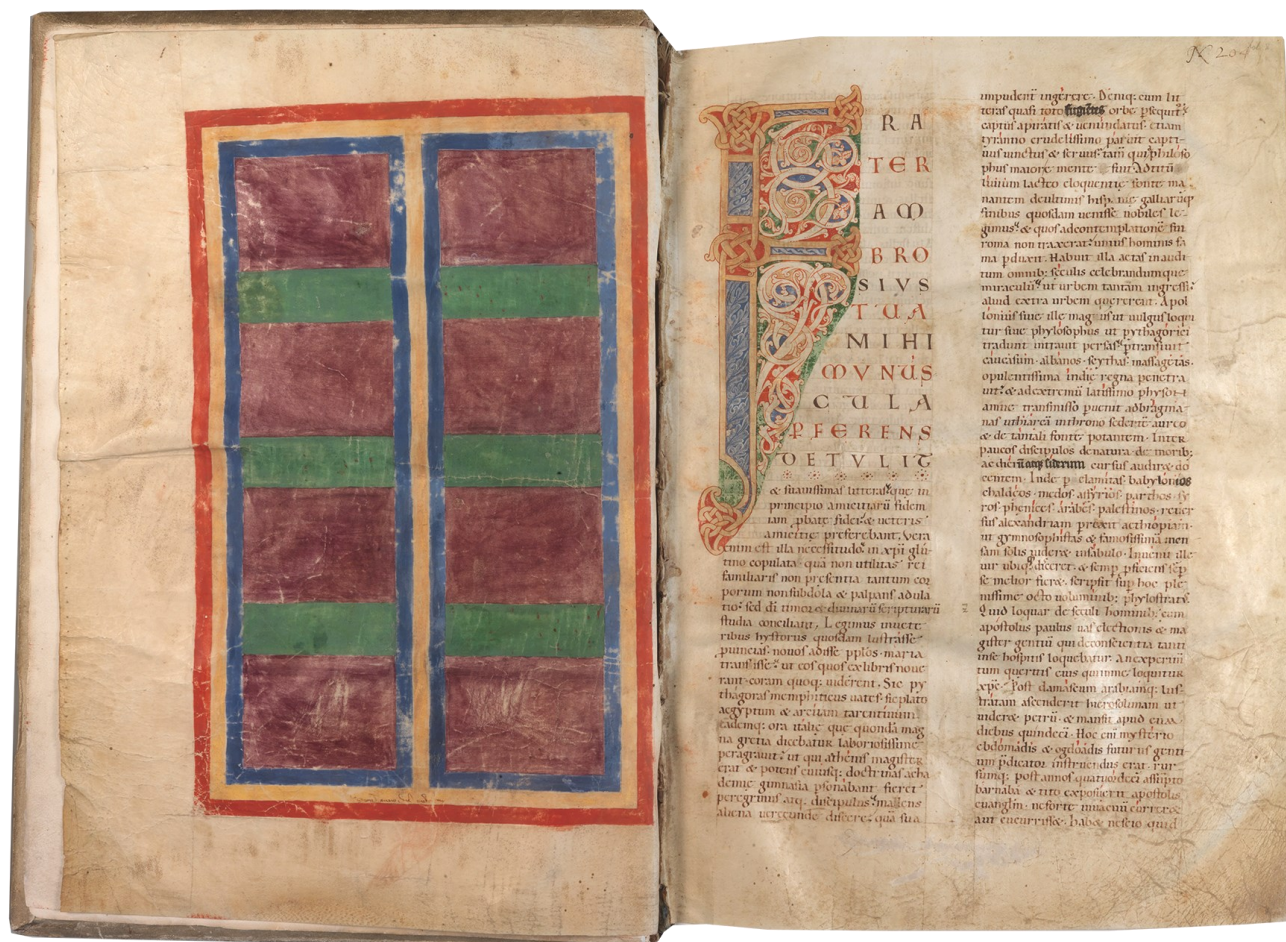 N 20
FRA
TER
AM
BRO
SIVS
TUA
MIHI
MVNUS
CULA
PFERENS
DETVLIT
& suauissimas litteras que in
principio amicitiarū fidem
iam pbate fidei & ueteris
amicitię preferebant. Vera
enim est illa necessitudo in xpi glu
tino copulata quā non utilitas rei
familiaris non presentia tantum cor
porum non subdola & palpans adula
tio sed di timor & diuinarū scripturarū
studia conciliant. Legimus in uete
ribus hystoriis quosdam lustrasse
puincias nouos adisse pplos maria
transisse ut eos quos ex libris noue
rant coram quoq; uiderent. Sic py
thagoras memphiticus uates sic plato
aegyptum & arcitam tarentinum
eademq: ora italie que quondā mag
na gretia dicebatur laboriosissime
peragrauit ut qui athenis magister
erat & potens cuiusq: doctrinas acha
demie gimnasia psonabant fieret
peregrinus atq: discipulus mallens
aliena uerecunde discere quā sua
impudent ingerere. Deniq: cum lit
teras quasi toto fugientes orbe psequit
captus apiratis & uenundatus etiam
tyranno crudelissimo paruit capti
uus uinctus & seruus tam qui philoso
phus maiore mente fuit. Ad titū
liuium lacteo eloquentie fonte ma
nantem de ultimis hispanie galliarūq
finibus quosdam uenisse nobiles le
gimus & quos ad contemplationē sui
roma non traxerat unius hominis fa
ma pduxit. Habuit illa aetas inaudi
tum omnib: seculis celebrandumque
miraculū ut urbem tantam ingressi
aliud extra urbem quererent. Apol
lonius siue ille magus ut uulgus loqui
tur siue phylosophus ut pythagorici
tradunt intrauit persas ptransiuit
caucasum albanos scythas massagetas
opulentissima indie regna penetra
uit & ad extremū latissimo physon
amne transmisso puenit ad bragma
nas ut hiarcā in throno sedente aureo
& de tantali fonte potantem. Inter
paucos discipulos de natura de morib:
ac dierū atq; siderum cursus audire do
centem. Inde p elamitas babylonios
chaldeos medos assyrios parthos sy
ros phenices arabes palestinos reuer
sus alexandriam prexit aethiopiam
ut gymnosophistas & famosissimā men
sam solis uideret in sabulo. Inuenit ille
uir ubiq disceret & semp pficiens sep
se melior fieret. Scripsit sup hoc ple
nissime octo uoluminib: phylostrat
Quid loquar de seculi hominib: cum
apostolus paulus uas electionis & ma
gister gentiū qui de conscientia tanti
in se hospitis loquebatur. An experim
tum queritis eius qui in me loquitur
xpc. Post damascum arabiamq: lus
tratam ascenderit hierosolimam ut
uideret petrū & mansit apud eum
diebus quindeci. Hoc eni mysterio
ebdomadis & ogdoadis futurus genti
um pdicator instruendus erat. rur
sumq: post annos quatuordeci assupto
barnaba & tito exposuerit apostolis
euanglm ne forte in uacuū curreret
aut cucurrisset. habet nescio quid